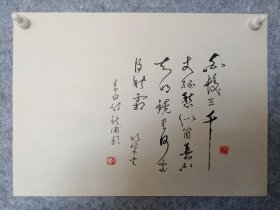 白髮三千
丈緣愁似箇長不
知明鏡里何處
得秋霜
李白詩秋浦歌